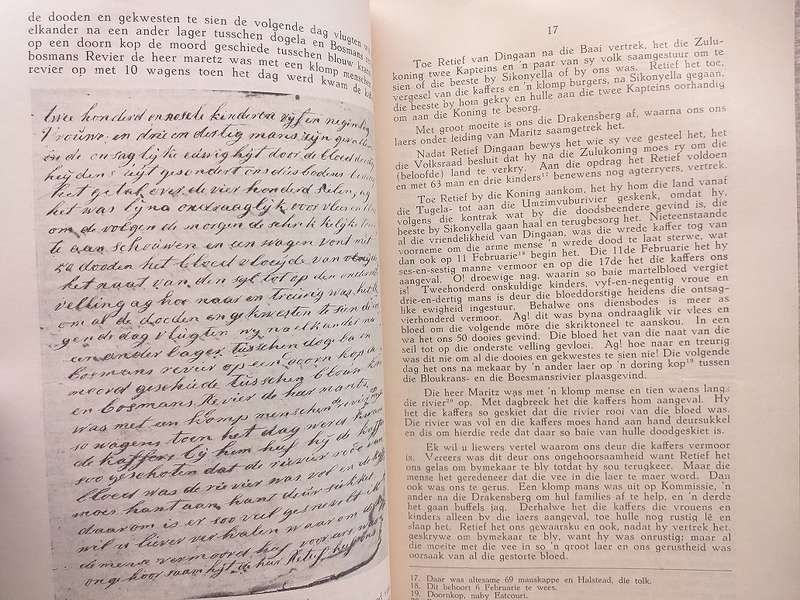 de dooden en gekwesten te sien de volgende dag vlugten wy
elkander na een ander lager tusschen dogela en Bosmans
op een doorn kop de moord geschiede tusschen blouw kraans
bosmans Revier de heer maretz was met een klomp menschen
revier op met 10 wagens toen het dag werd kwam de
twee honderd onnosele kinderen vyf en negindig
vrouwe en drie en dertig mans zijn
de onsaglijke eeuwighijt door de bloed
heijdens
het getal over de vier honderd zielen, ag
het was byna ondraaglijk voor vlies en bloed
om de volgen de morgen de schrik kelijke
te aan schouwen en een wagen vont
50 dooden het bloed vloeijde van
het naat van den zyl tot op den onderste
velling ag hoe naar en treurig was het
om al de dooden en gekwesten te sien de
gende dag vlugten wy na elkander na
een ander lager tusschen
bosmans revier op een doorn kop
moord geschiede tusschen blouw
en bosmans Revier de heer maretz
was met een klomp menschen
10 wagens toen het dag werd kwam
de kaffers by hem
geschoten dat de revier
bloed was de revier was vol
moes hant aan hant deur
daarom is er soo veel
wil u liever verhalen waarom
de mense vermoord
ongehoorsaam hyt de heer Retief
17
Toe Retief van Dingaan na die Baai vertrek, het die Zulu-
koning twee Kapteins en 'n paar van sy volk saamgestuur om te
sien of die beeste by Sikonyella of by ons was. Retief het toe,
vergesel van die kaffers en 'n klomp burgers, na Sikonyella gegaan,
die beeste by hom gekry en hulle aan die twee Kapteins oorhandig
om aan die Koning te besorg.
Met groot moeite is ons die Drakensberg af, waarna ons ons
laers onder leiding van Maritz saamgetrek het.
Nadat Retief Dingaan bewys het wie sy vee gesteel het, het
die Volksraad besluit dat hy na die Zulukoning moes ry om die
(beloofde) land te verkry. Aan die opdrag het Retief voldoen
en met 63 man en drie kinders17 benewens nog agterryers, vertrek.
Toe Retief by die Koning aankom, het hy hom die land vanaf
die Tugela- tot aan die Umzimvuburivier geskenk, omdat hy,
volgens die kontrak wat by die doodsbeendere gevind is, die
beeste by Sikonyella gaan haal en terugbesorg het. Nieteenstaande
al die vriendelikheid van Dingaan, was die wrede kaffer tog van
voorneme om die arme mense 'n wrede dood te laat sterwe, wat
dan ook op 11 Februarie18 begin het. Die 11de Februarie het hy
ses-en-sestig manne vermoor en op die 17de het die kaffers ons
aangeval. O! droewige nag, waarin so baie martelbloed vergiet
is! Tweehonderd onskuldige kinders, vyf-en-negentig vroue en
drie-en-dertig mans is deur die bloeddorstige heidens die ontsag-
like ewigheid ingestuur. Behalwe ons diensbodes is meer as
vierhonderd vermoor. Ag! dit was byna ondraaglik vir vlees en
bloed om die volgende môre die skriktoneel te aanskou. In een
wa het ons 50 dooies gevind. Die bloed het van die naat van die
seil tot op die onderste velling gevloei. Ag! hoe naar en treurig
was dit nie om al die dooies en gekwestes te sien nie! Die volgende
dag het ons na mekaar by 'n ander laer op 'n doring kop19 tussen
die Bloukrans- en die Boesmansrivier plaasgevind.
Die heer Maritz was met 'n klomp mense en tien waens langs
die rivier20 op. Met dagbreek het die kaffers hom aangeval. Hy
het die kaffers so geskiet dat die rivier rooi van die bloed was.
Die rivier was vol en die kaffers moes hand aan hand deursukkel
en dis om hierdie rede dat daar so baie van hulle doodgeskiet is.
Ek wil u liewers vertel waarom ons deur die kaffers vermoor
is. Vereers was dit deur ons ongehoorsaamheid want Retief het
ons gelas om bymekaar te bly totdat hy sou terugkeer. Maar die
mense het geredeneer dat die vee in die laer te maer word. Dan
ook was ons te gerus. Een klomp mans was uit op Kommissie, 'n
ander na die Drakensberg om hul families af te help, en 'n derde
het gaan buffels jag. Derhalwe het die kaffers die vrouens en
kinders alleen by die laers aangeval, toe hulle nog rustig lê en
slaap het. Retief het ons gewaarsku en ook, nadat hy vertrek het,
geskrywe om bymekaar te bly, want hy was onrustig; maar al
die moeite met die vee in so 'n groot laer en ons gerustheid was
oorsaak van al die gestorte bloed.
17. Daar was altesame 69 manskappe en Halstead, die tolk.
18. Dit behoort 6 Februarie te wees.
19. Doornkop, naby Estcourt.